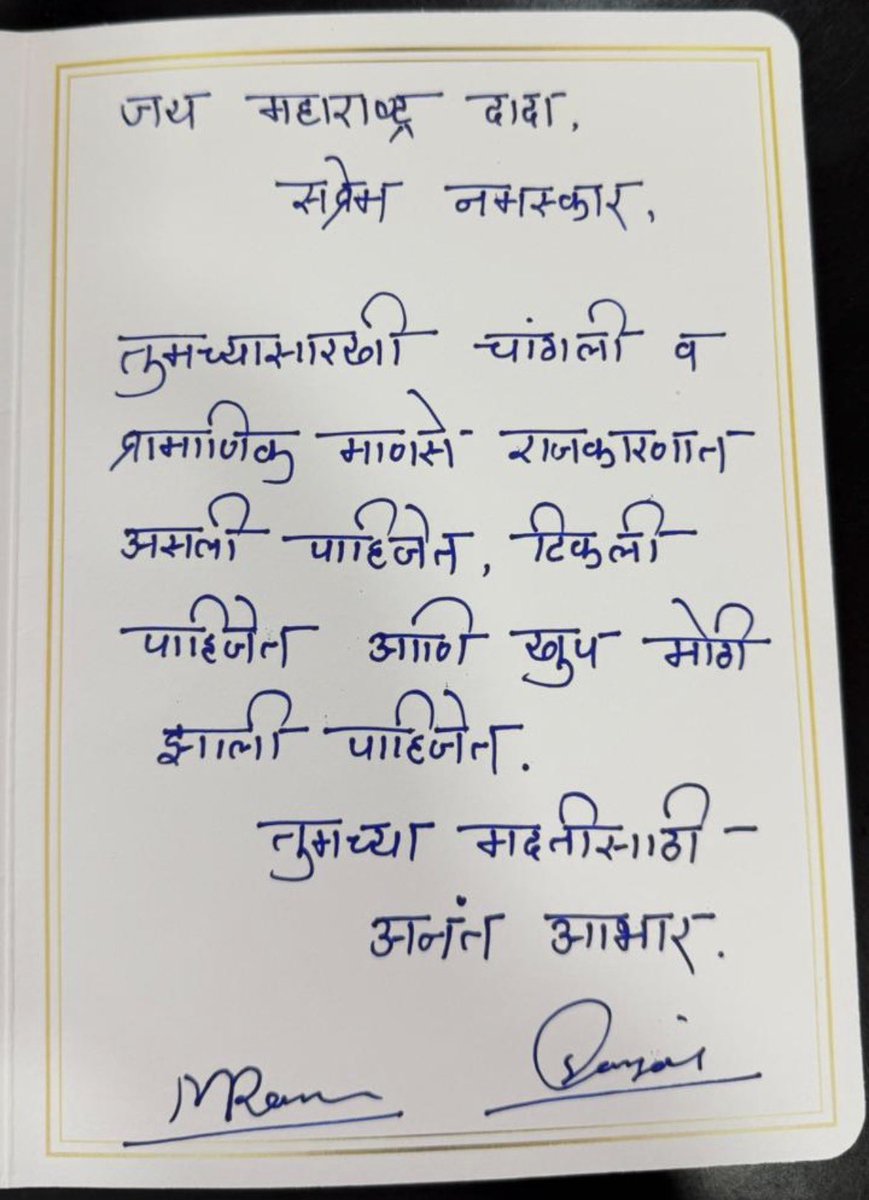 जय महाराष्ट्र दादा,
सप्रेम नमस्कार,
तुमच्यासारखी चांगली व
प्रामाणिक माणसे राजकारणात
असली पाहिजेत, टिकली
पाहिजेत आणि खुप मोठी
झाली पाहिजेत.
तुमच्या मदतीसाठी -
अनंत आभार.